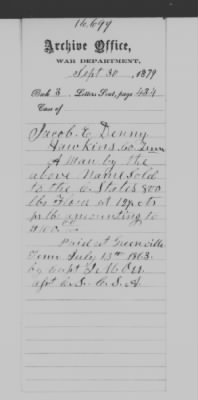 16,699
Archive Office,
WAR DEPARTMENT,
Sept 30, 1879
Book 3, Letters Sent, page 434
Case of
Jacob E Denny
Hawkins Co Tenn
A Man by the
above Name Sold
to the c. States 800
lbs Flour at 12½ cts
pr lb amounting to
$100.00
Paid at Greenville
Tenn July 13th 1863
by Capt
Apt C. S. C. S. A.